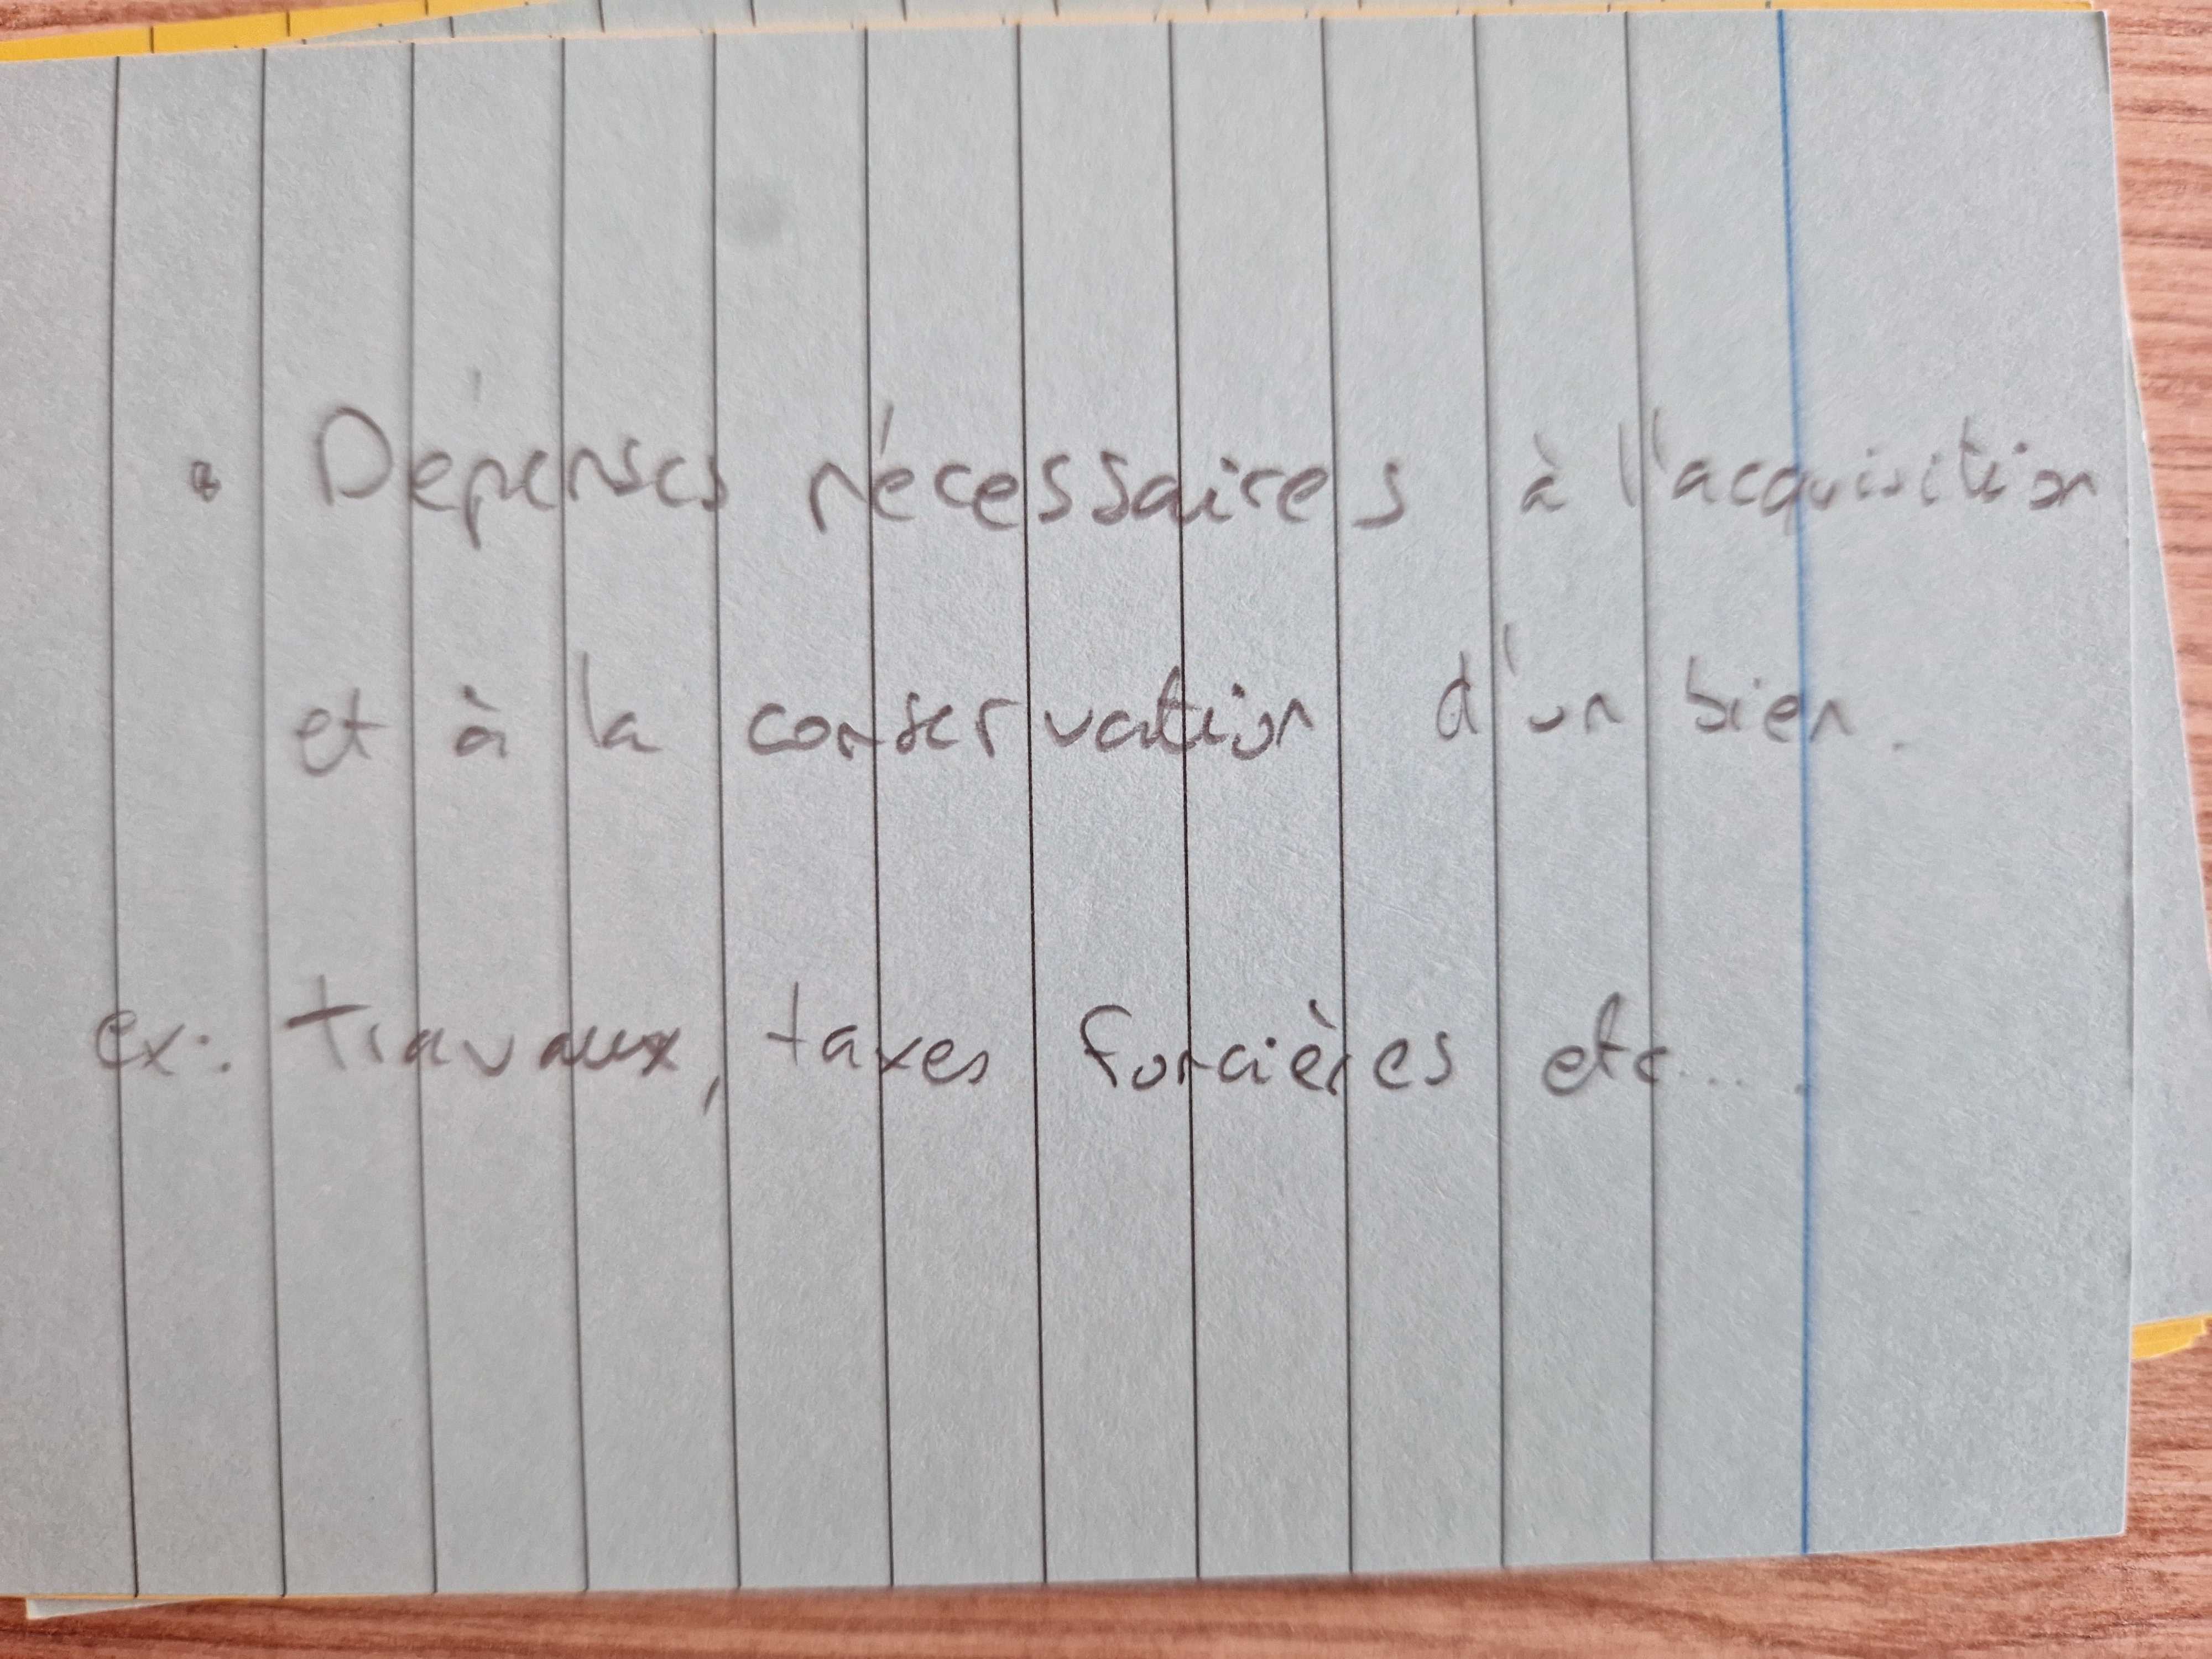 • Dépenses nécessaires à l'acquisition
et à la conservation d'un bien.
ex: travaux, taxes foncières etc.....